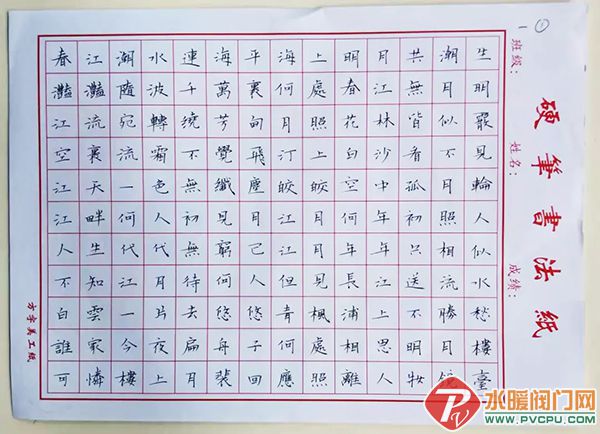 春江潮水連海平海上明月共潮生
灩灩隨波千萬裏何處春江無月明
江流宛轉繞芳甸月照花林皆似霰
空裏流霜不覺飛汀上白沙看不見
江天一色無纖塵皎皎空中孤月輪
江畔何人初見月江月何年初照人
人生代代無窮已江月年年只相似
不知江月待何人但見長江送流水
白雲一片去悠悠青楓浦上不勝愁
誰家今夜扁舟子何處相思明月樓
可憐樓上月裴回應照離人妝鏡臺
①
硬筆書法紙
班级： 姓名： 成绩：
方字美工紙
水暖阀门网
WWW.PVCPU.COM